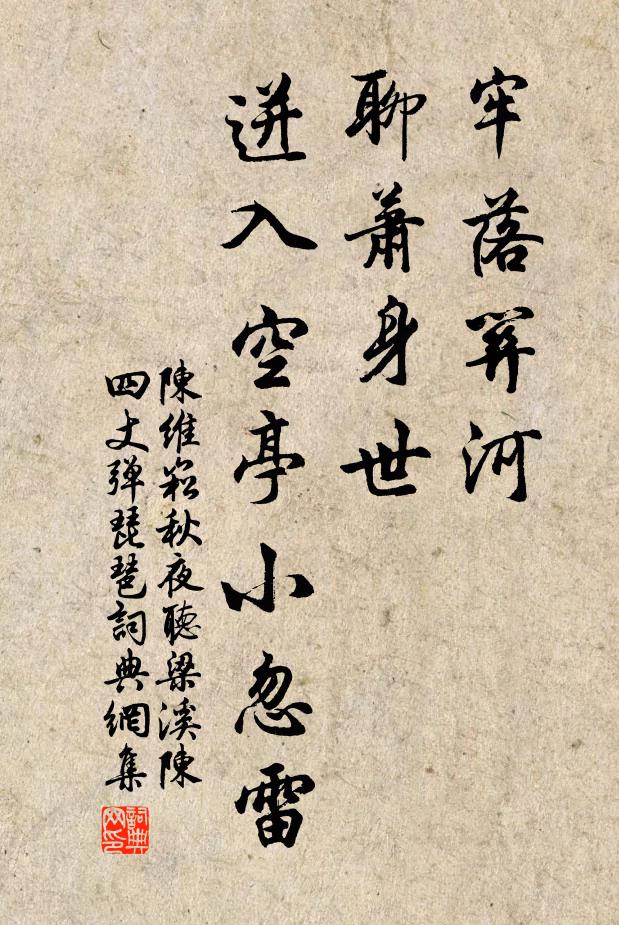 牢落關河
聊蕭身世
迸入空亭小忽雷
陳維崧秋夜聽梁溪陳
四丈彈琵琶詞典網集
詞典
网印